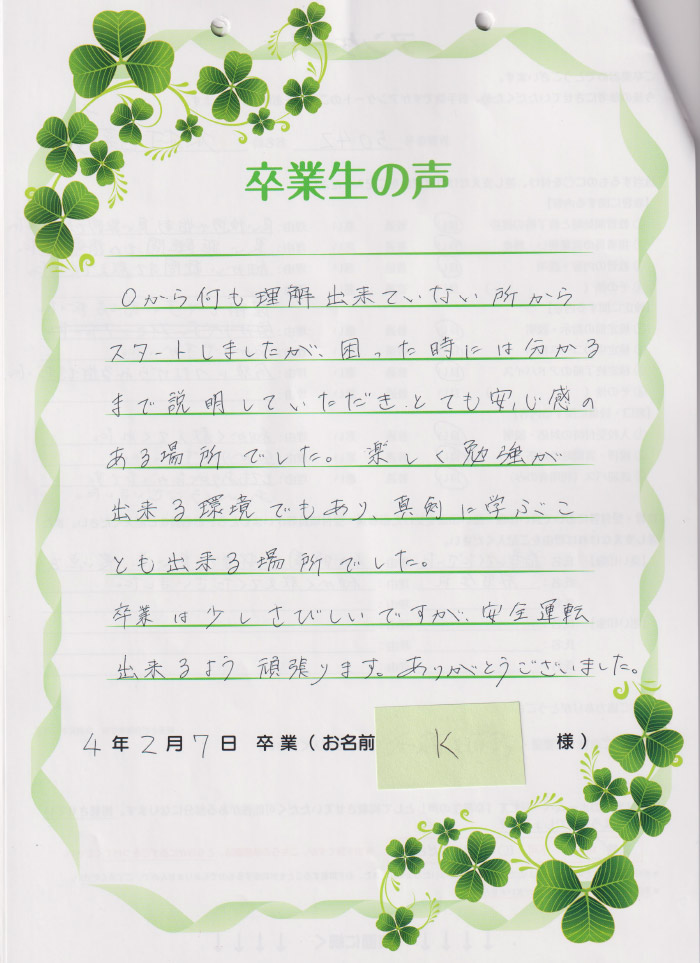 卒業生の声
0から何も理解出来ていない所から
スタートしましたが、困った時には分かる
まで説明していただき、とても安心感の
ある場所でした。楽しく勉強が
出来る環境でもあり、真剣に学ぶこ
とも出来る場所でした。
卒業は少しさびしいですが、安全運転
出来るよう頑張ります。ありがとうございました。
4年2月7日 卒業(お名前 K 様)